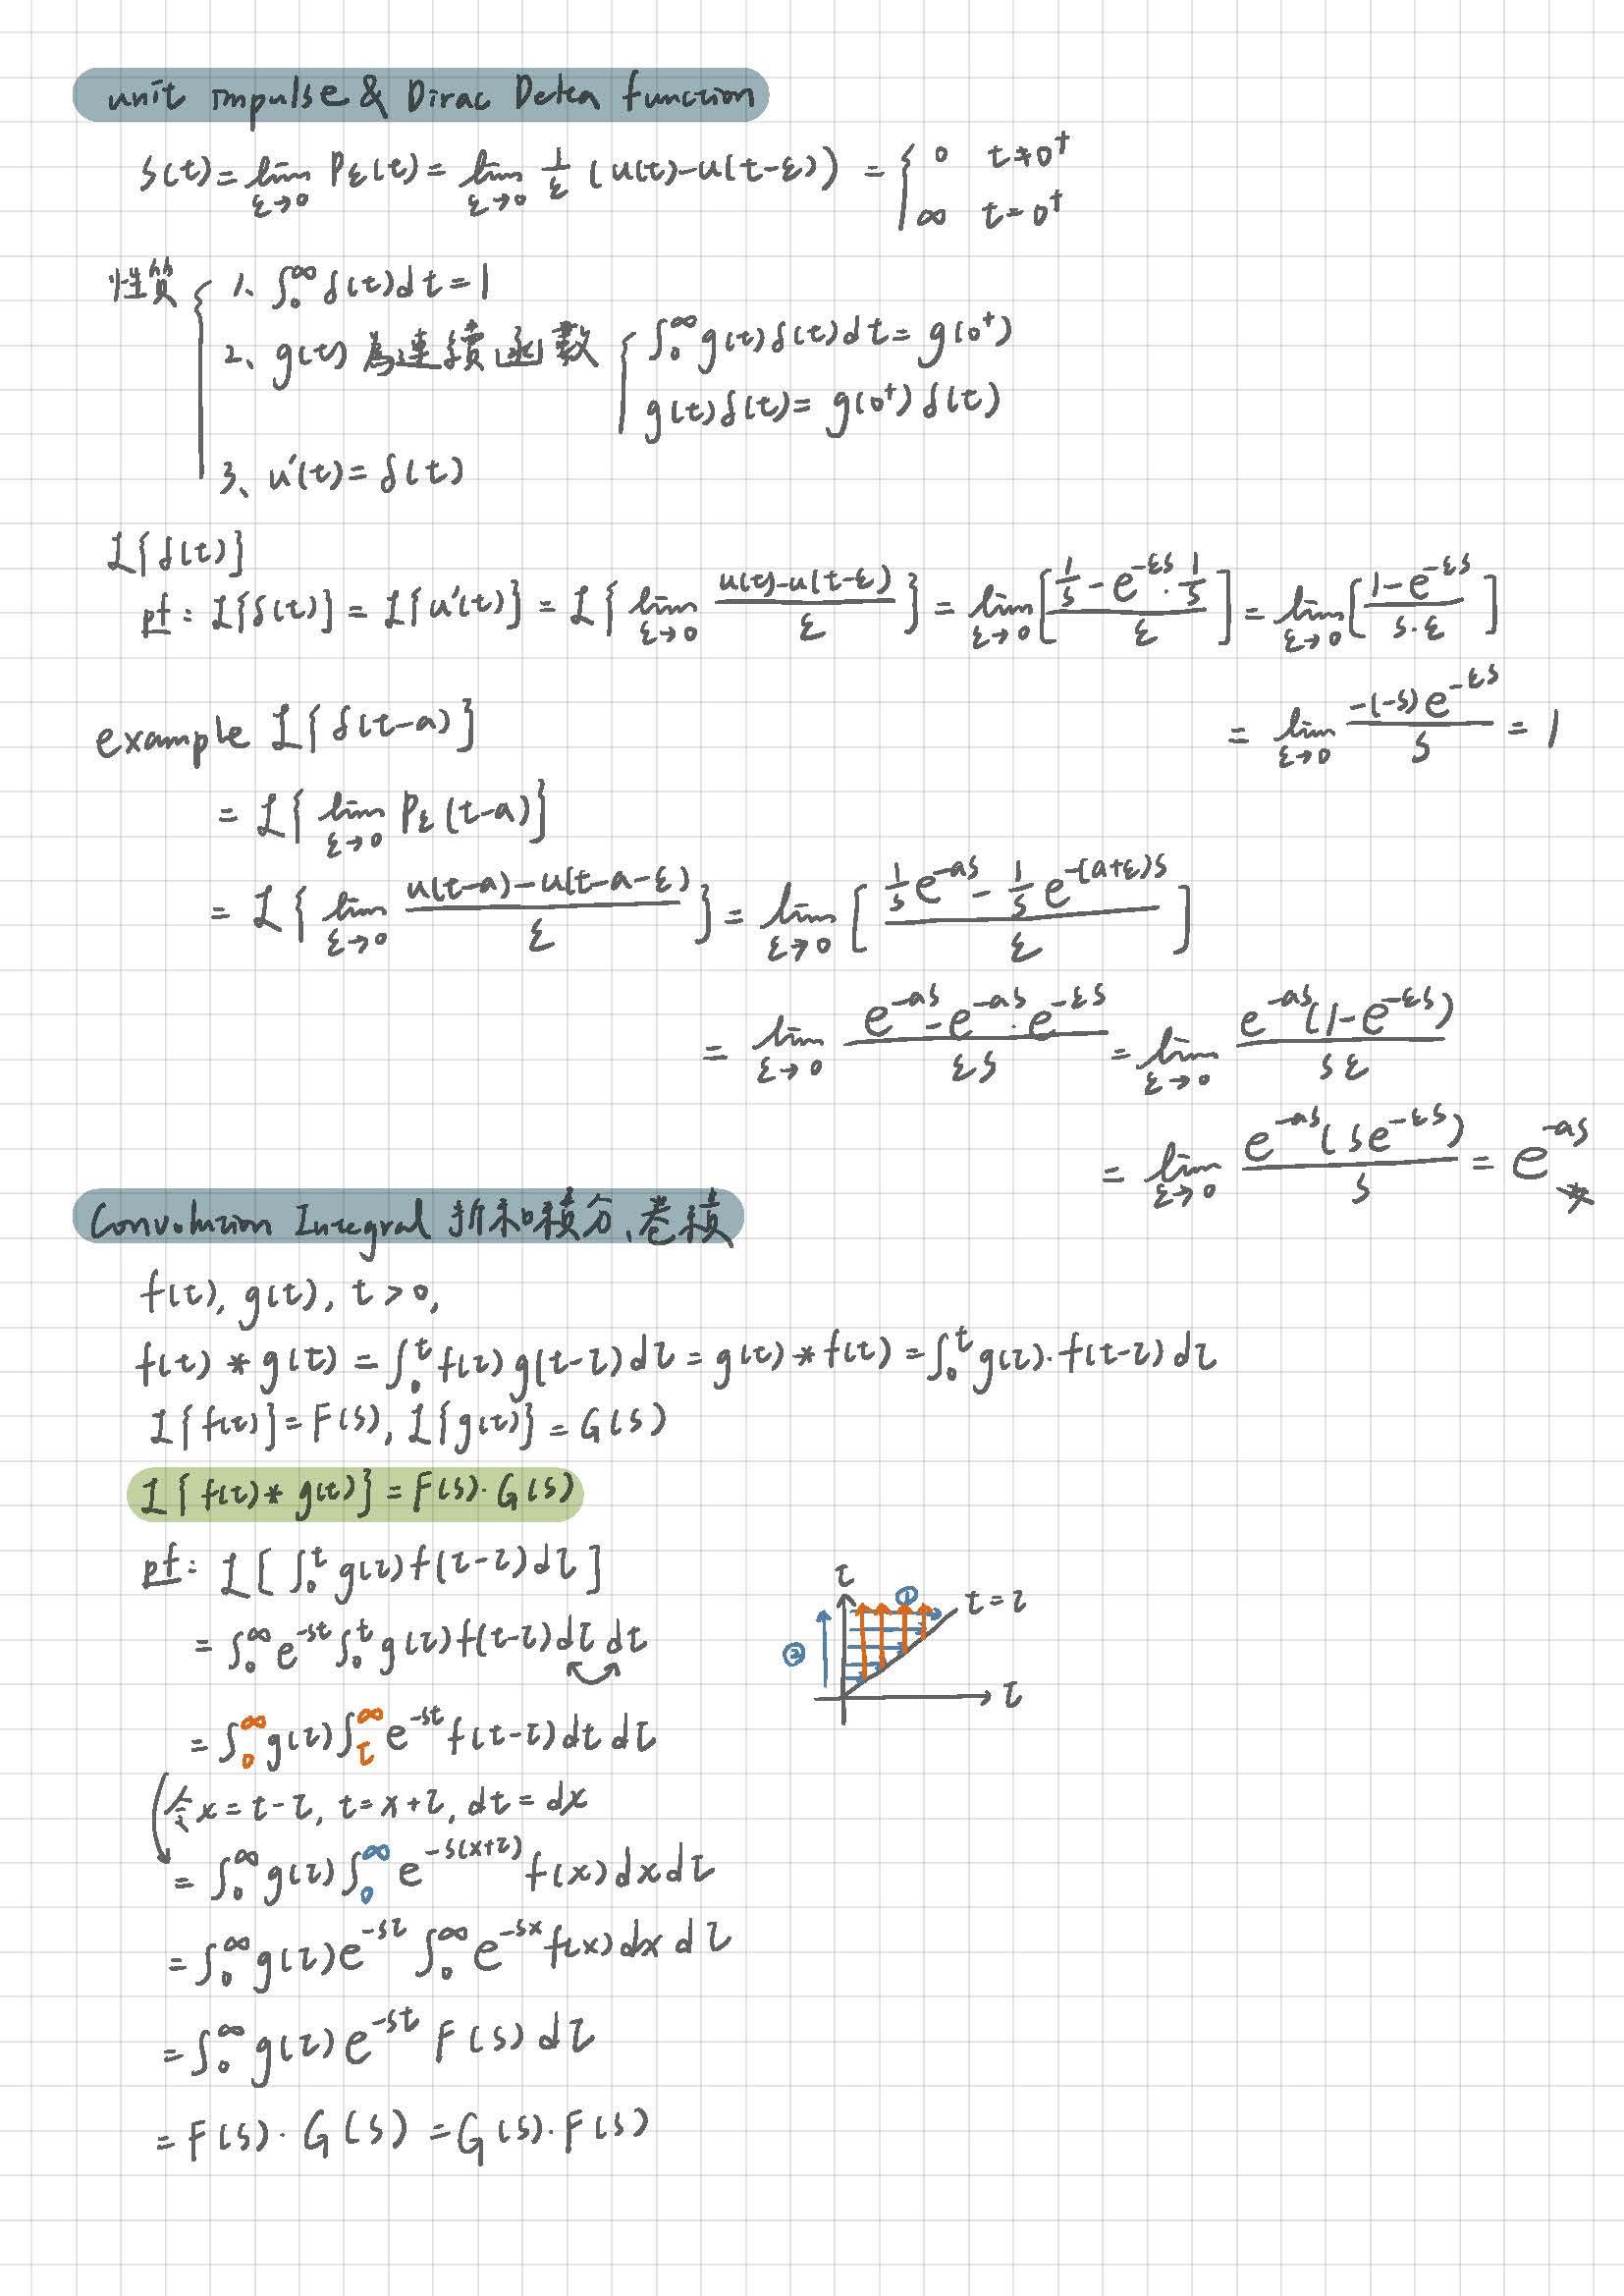 unit impulse & Dirac Delta function
δ(t) = lim_{ε→0} P_ε(t) = lim_{ε→0} 1/ε (u(t)-u(t-ε)) = { 0 t≠0⁺
∞ t=0⁺
性質 { 1、∫₀^∞ δ(t)dt = 1
2、g(t) 為連續函數 { ∫₀^∞ g(t)δ(t)dt = g(0⁺)
g(t)δ(t) = g(0⁺)δ(t)
3、u'(t) = δ(t)
ℒ{δ(t)}
pf: ℒ{δ(t)} = ℒ{u'(t)} = ℒ{ lim_{ε→0} (u(t)-u(t-ε))/ε } = lim_{ε→0} [ (1/s - e^{-εs}·1/s)/ε ] = lim_{ε→0} [ (1-e^{-εs})/(s·ε) ]
= lim_{ε→0} (-(-s)e^{-εs})/s = 1
example ℒ{δ(t-a)}
= ℒ{ lim_{ε→0} P_ε(t-a) }
= ℒ{ lim_{ε→0} (u(t-a)-u(t-a-ε))/ε } = lim_{ε→0} [ (1/s e^{-as} - 1/s e^{-(a+ε)s})/ε ]
= lim_{ε→0} (e^{-as} - e^{-as}·e^{-εs})/(εs) = lim_{ε→0} (e^{-as}(1-e^{-εs}))/(sε)
= lim_{ε→0} (e^{-as}(se^{-εs}))/s = e^{-as} ※
Convolution Integral 折和積分、卷積
f(t), g(t), t>0,
f(t) * g(t) = ∫₀^t f(τ)g(t-τ)dτ = g(t) * f(t) = ∫₀^t g(τ)·f(t-τ)dτ
ℒ{f(t)} = F(s), ℒ{g(t)} = G(s)
ℒ{f(t)* g(t)} = F(s)·G(s)
pf: ℒ[ ∫₀^t g(τ)f(t-τ)dτ ]
= ∫₀^∞ e^{-st} ∫₀^t g(τ)f(t-τ)dτ dt
t
①
t=τ
②
τ
= ∫₀^∞ g(τ) ∫_τ^∞ e^{-st} f(t-τ)dt dτ
令 x=t-τ, t=x+τ, dt=dx
= ∫₀^∞ g(τ) ∫₀^∞ e^{-s(x+τ)} f(x)dx dτ
= ∫₀^∞ g(τ)e^{-sτ} ∫₀^∞ e^{-sx} f(x)dx dτ
= ∫₀^∞ g(τ)e^{-st} F(s)dτ
= F(s)·G(s) = G(s)·F(s)